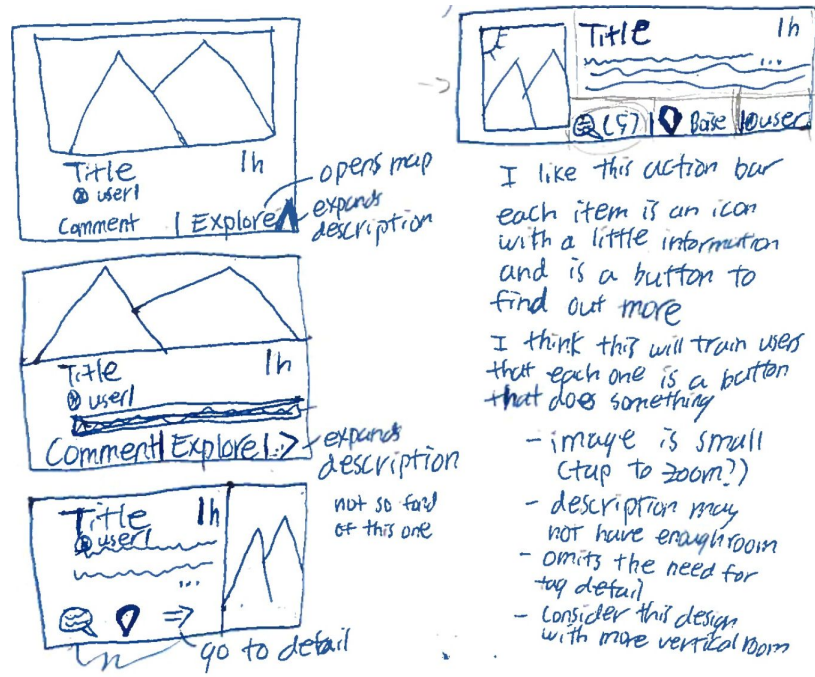 Title 1h
user1
Comment | Explore
opens map
expands
description
Title 1h
user1
Comment | Explore | :>
expands
description
not so fond
of this one
Title 1h
user1
...
go to detail
Title 1h
...
(5) Base user
I like this action bar
each item is an icon
with a little information
and is a button to
find out more
I think this will train users
that each one is a button
that does something
- image is small
(tap to zoom?)
- description may
not have enough room
- omits the need for
tag detail
- Consider this design
with more vertical room